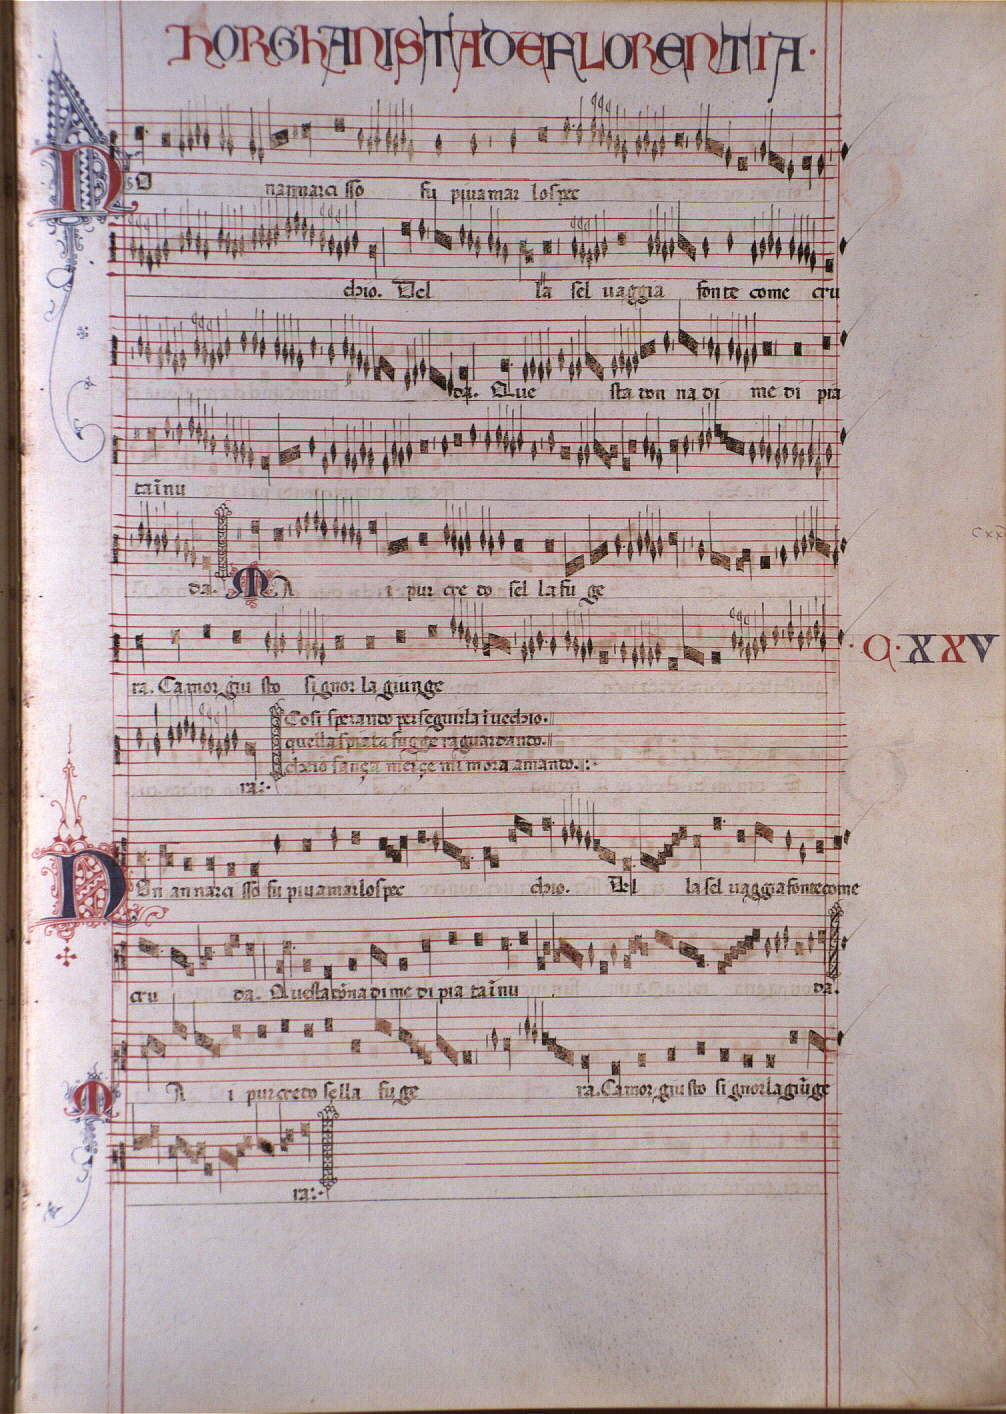 HORGHANISTA DE FLORENTIA·
NO nannarci sso fu piu amar lo spec
chio. Del la sel uaggia fonte come cru
da. Que sta don na di me di pia
tainu
da. MA i pur cre do sel la fu ge
ra. Camor giu sto signor la giunge
C·XXV
Cosi sperando perseguirla inuechio.
quella spiata fugge raguardando.
ra:·
NOn annarci sso fu piu amar lo spec chio. Del la sel uaggia fonte come
cru da. Questa dōna di me di pia tainu da.
MA i pur credo sella fuge ra. Camor giusto signor la giūge
ra:·